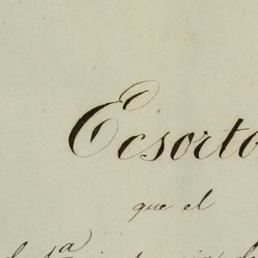 Ecsorto
que el